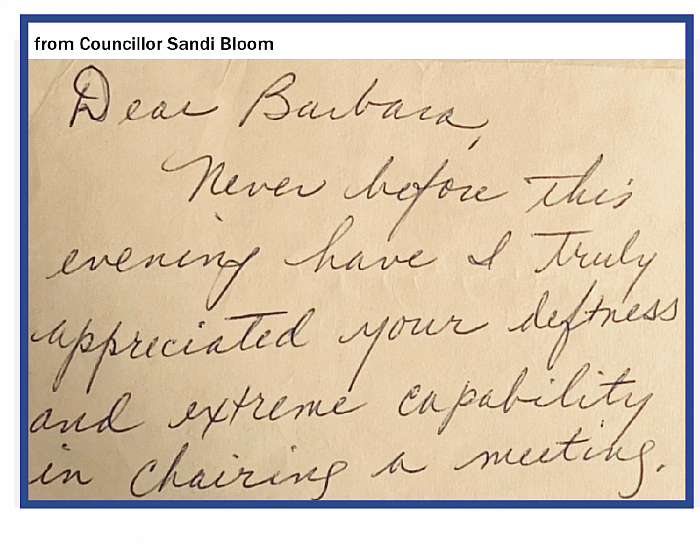 from Councillor Sandi Bloom
Dear Barbara,
Never before this
evening have I truly
appreciated your deftness
and extreme capability
in chairing a meeting.